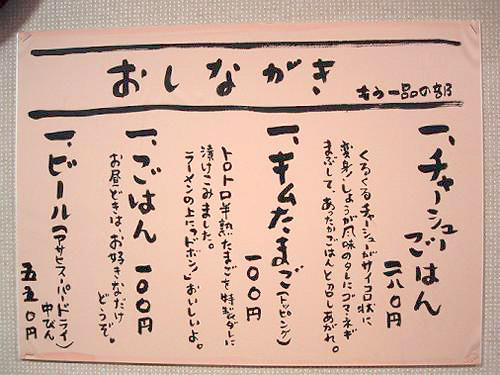 おしながき
もう一品の部
一、チャーシューごはん
二八〇円
くるくるチャーシューがサイコロ状に
変身！しょうが風味のタレにゴマ、ネギ
まぶして、あったかごはんと召しあがれ。
一、キムたまご（トッピング）
一〇〇円
トロトロ半熟たまごを特製ダレに
漬けこみました。
ラーメンの上に「ドボン」おいしいよ。
一、ごはん 一〇〇円
お昼どきは、お好きなだけ
どうぞ。
一、ビール（アサヒスーパードライ）
中びん
五五〇円